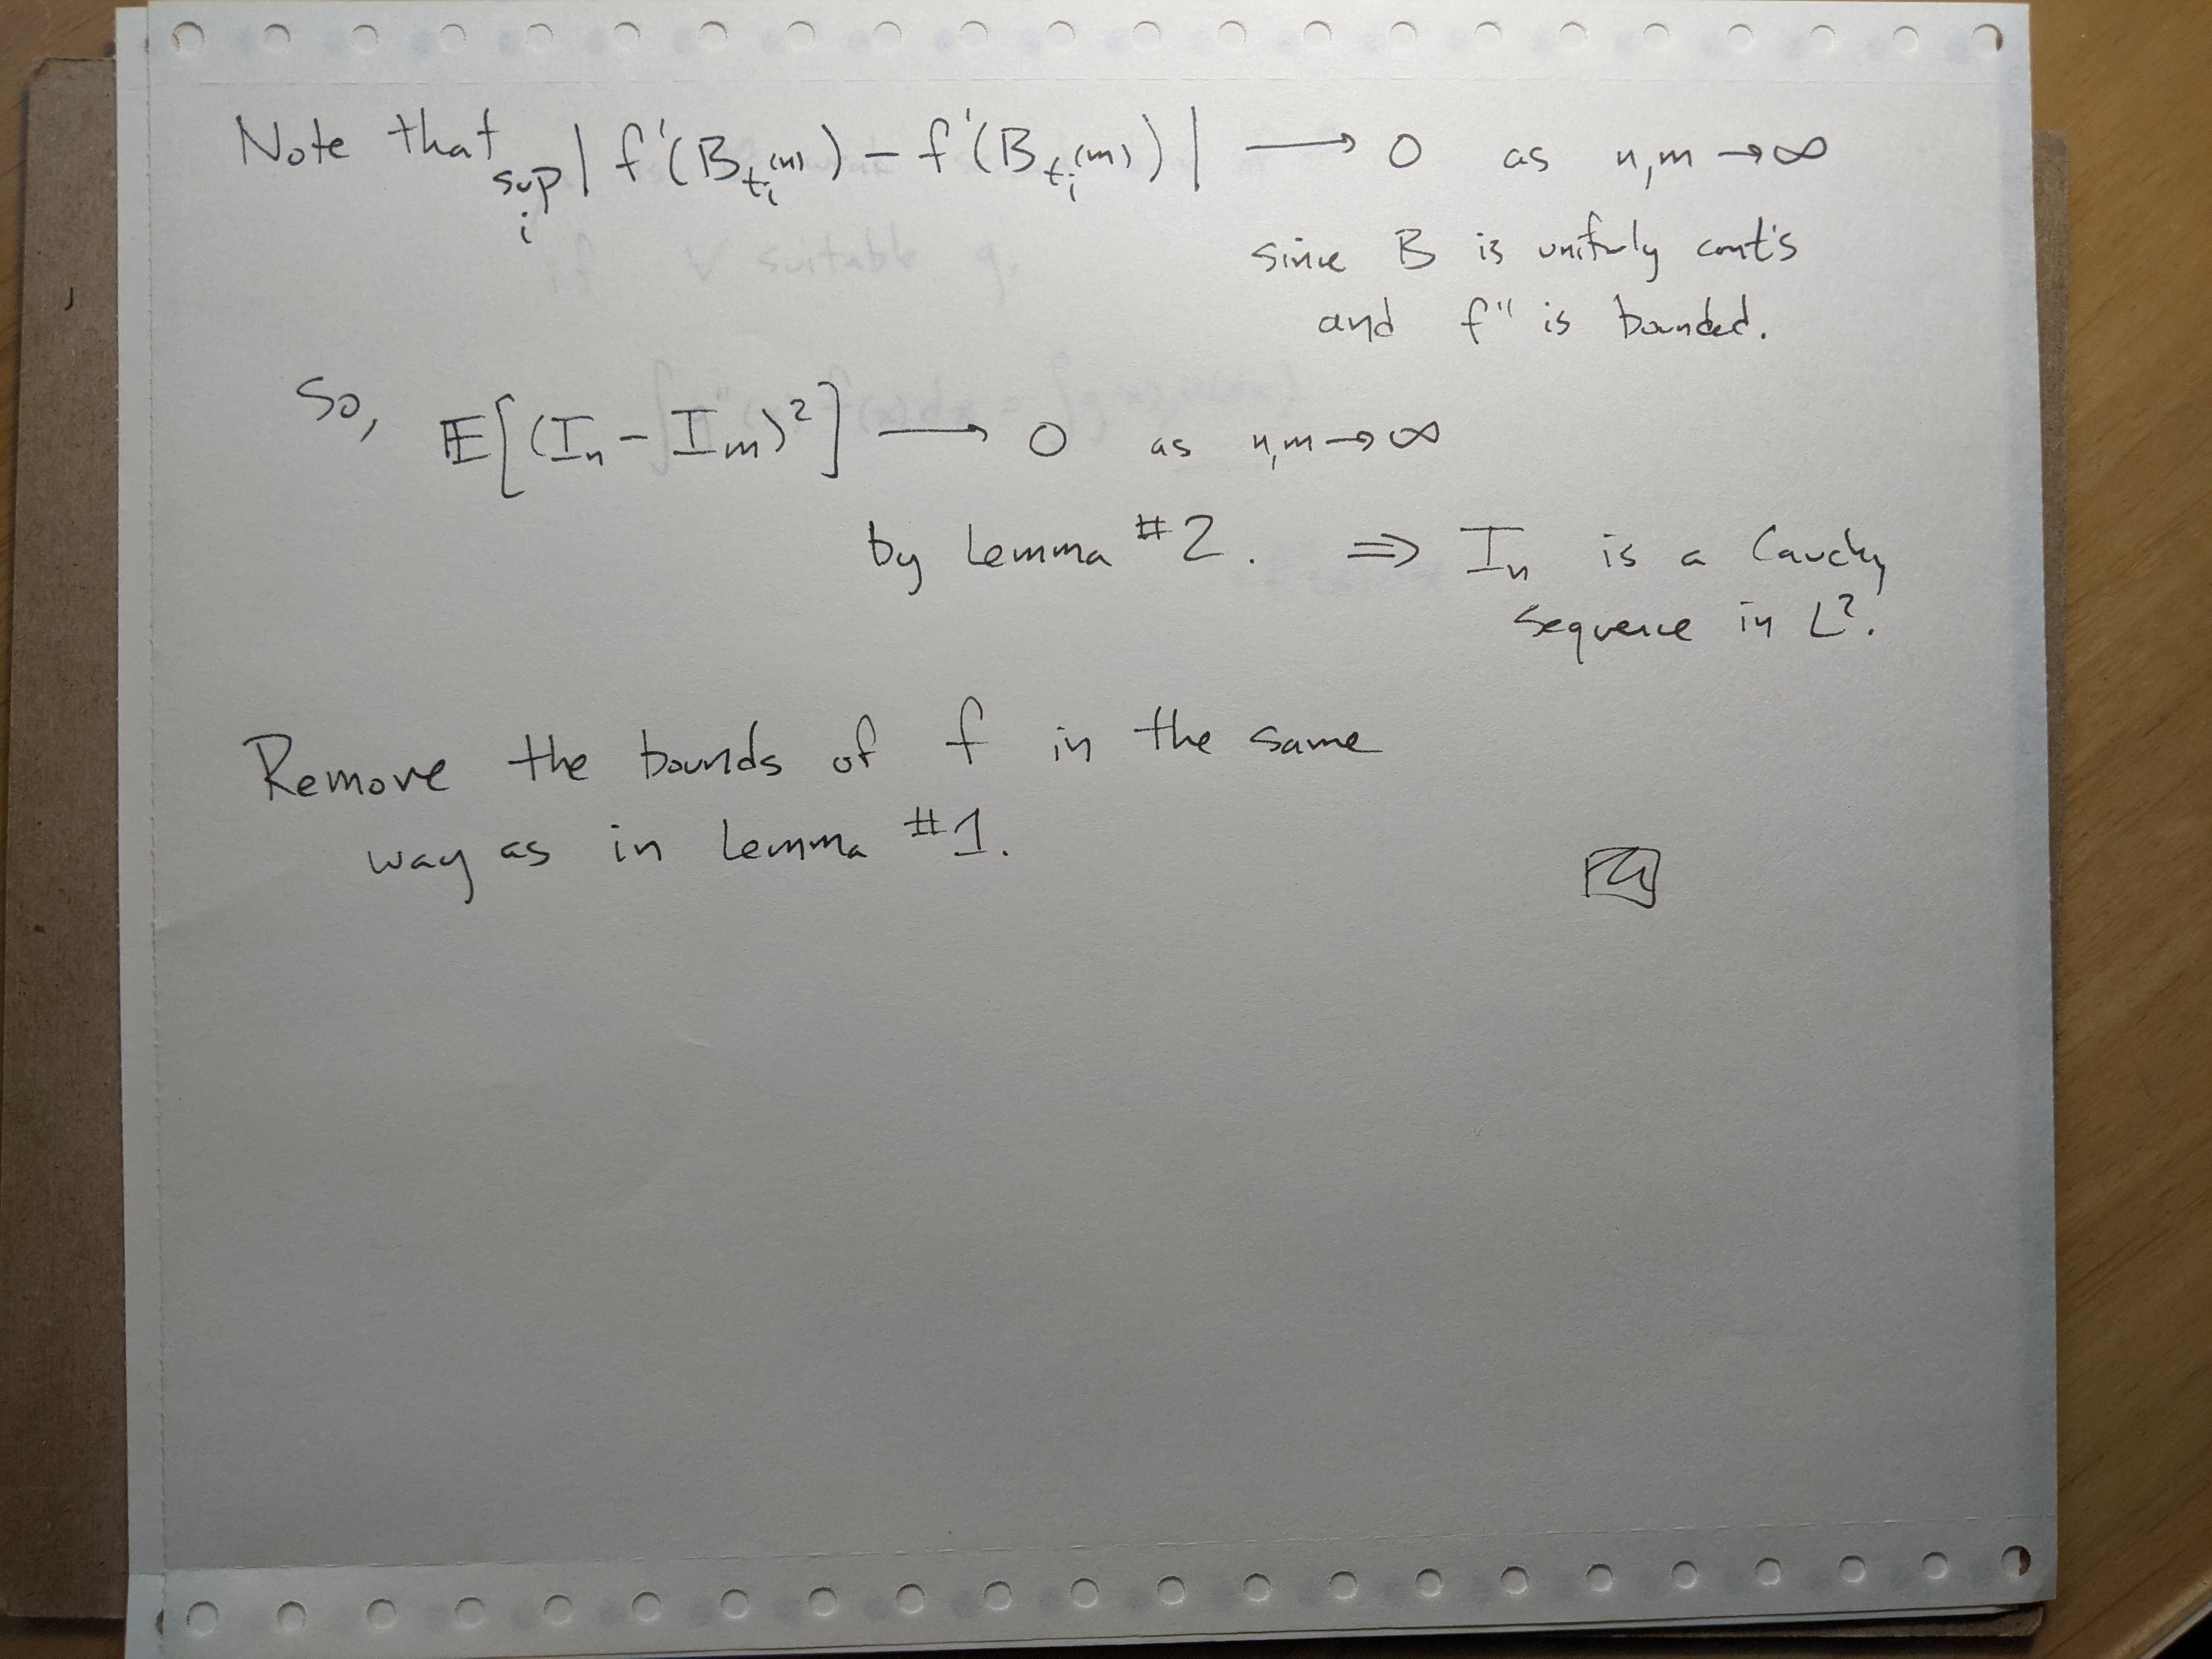 Note that sup_i | f'(B_{t_i^{(n)}}) − f'(B_{t_i^{(m)}}) | ⟶ 0 as n,m → ∞
since B is unifrmly cont's
and f'' is bounded.
So, 𝔼[(I_n − I_m)²] ⟶ 0 as n,m → ∞
by Lemma #2. ⇒ I_n is a Cauchy
sequence in L².
Remove the bounds of f in the same
way as in Lemma #1.